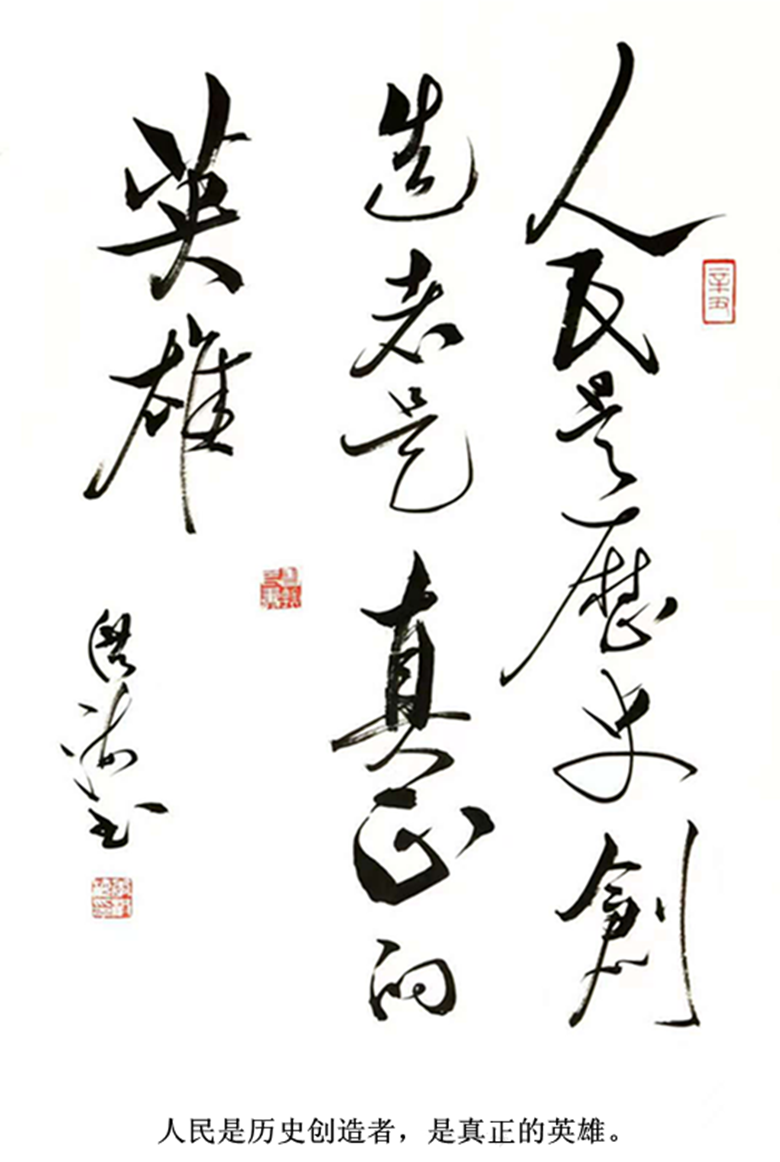 人民是歷史創
造者是真正的
英雄
辛丑
人民是历史创造者，是真正的英雄。